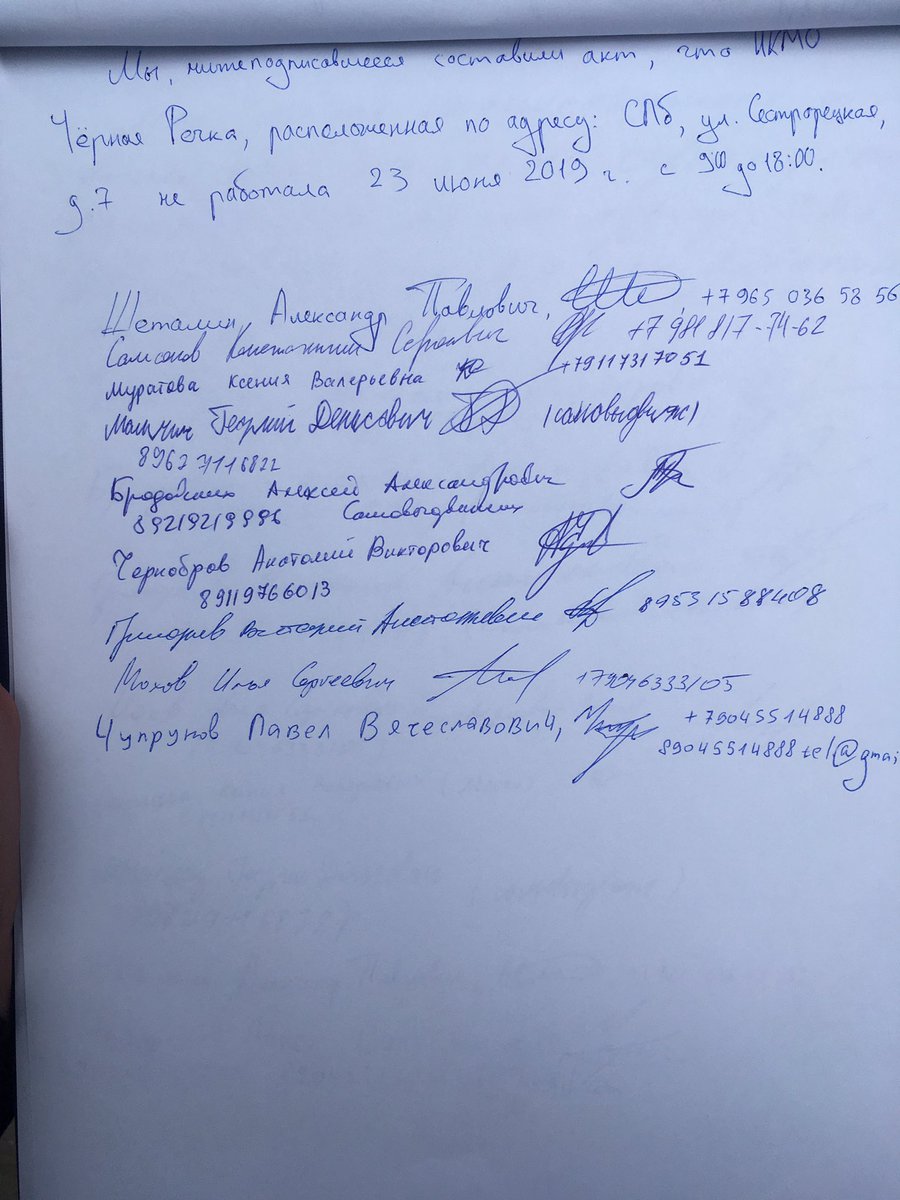 Мы, нижеподписавшиеся составили акт, что ИКМО
Чёрная Речка, расположенная по адресу: СПб, ул. Сестрорецкая,
д.7 не работала 23 июня 2019 г. с 9:00 до 18:00.
Александр Павлович, +7 965 036 58 56
Самсонов Константин Сергеевич +7 981 817-74-62
Муратова Ксения Валерьевна +79117317051
Георгий Денисович (самовыдвиж)
89627116822
Алексей Александрович
89219219996 Самовыдвиженец
Чернобров Анатолий Викторович
89119766013
Григорьев Виталий Анатольевич 89531588408
Мохов Илья Сергеевич
Чупрунов Павел Вячеславович, +79045514888
89045514888tel@gmai